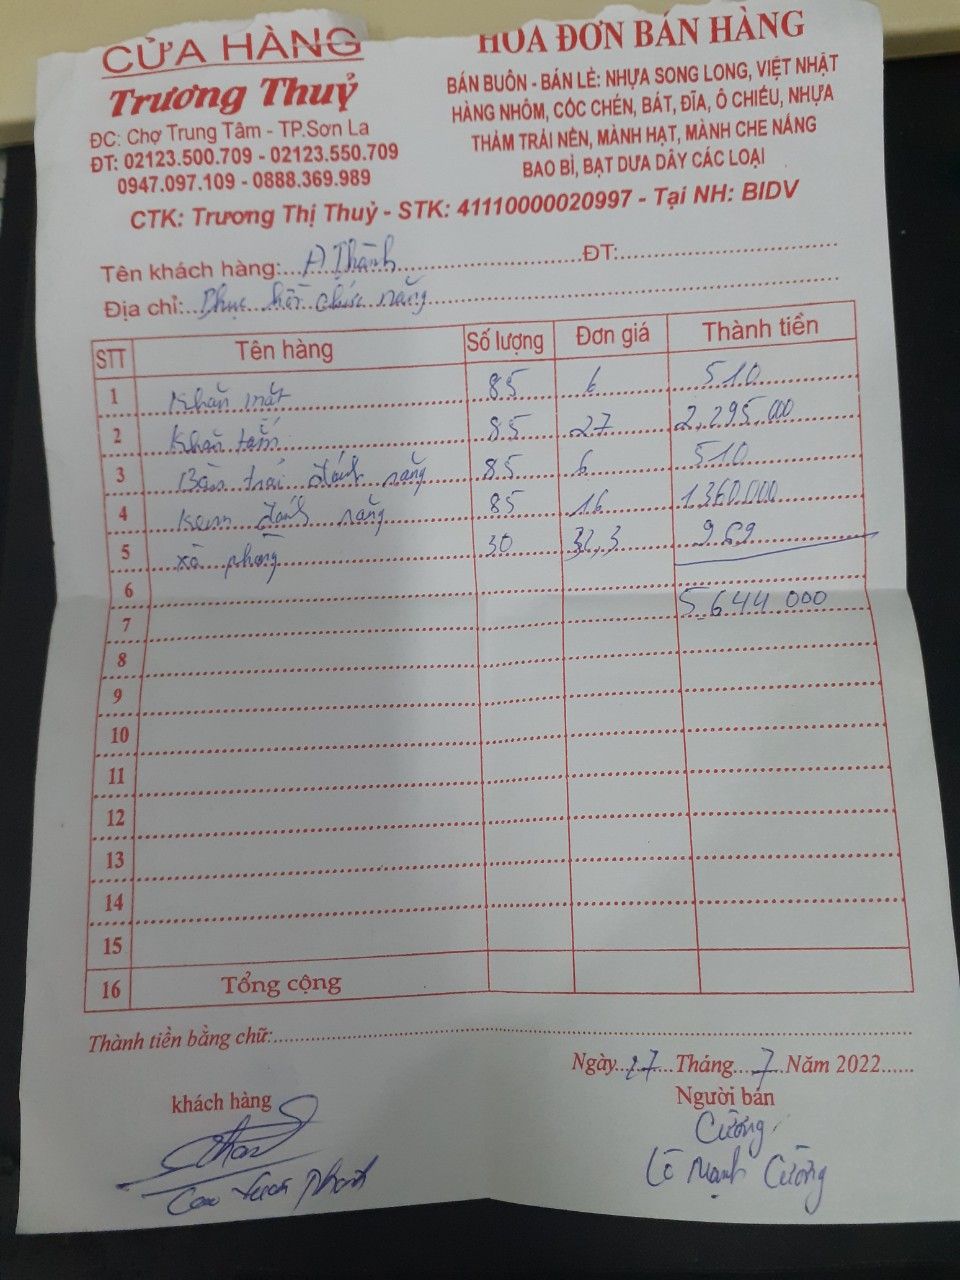 CỬA HÀNG
Trương Thuỷ
ĐC: Chợ Trung Tâm - TP.Sơn La
ĐT: 02123.500.709 - 02123.550.709
0947.097.109 - 0888.369.989
HÓA ĐƠN BÁN HÀNG
BÁN BUÔN - BÁN LẺ: NHỰA SONG LONG, VIỆT NHẬT
HÀNG NHÔM, CỐC CHÉN, BÁT, ĐĨA, Ô CHIẾU, NHỰA
THẢM TRẢI NỀN, MÀNH HẠT, MÀNH CHE NẮNG
BAO BÌ, BẠT DƯA DÂY CÁC LOẠI
CTK: Trương Thị Thuỷ - STK: 41110000020997 - Tại NH: BIDV
Tên khách hàng: A Thành ĐT:
Địa chỉ: Phục hồi chức năng
STT Tên hàng Số lượng Đơn giá Thành tiền
1 Khăn mặt 85 6 510
2 Khăn tắm 85 27 2.295.000
3 Bàn trải đánh răng 85 6 510
4 Kem đánh răng 85 16 1360.000
5 xà phòng 30 32,3 969
6
7 5.644.000
8
9
10
11
12
13
14
15
16 Tổng cộng
Thành tiền bằng chữ:
Ngày 27 Tháng 7 Năm 2022
khách hàng
Người bán
Cường
Lò Mạnh Cường